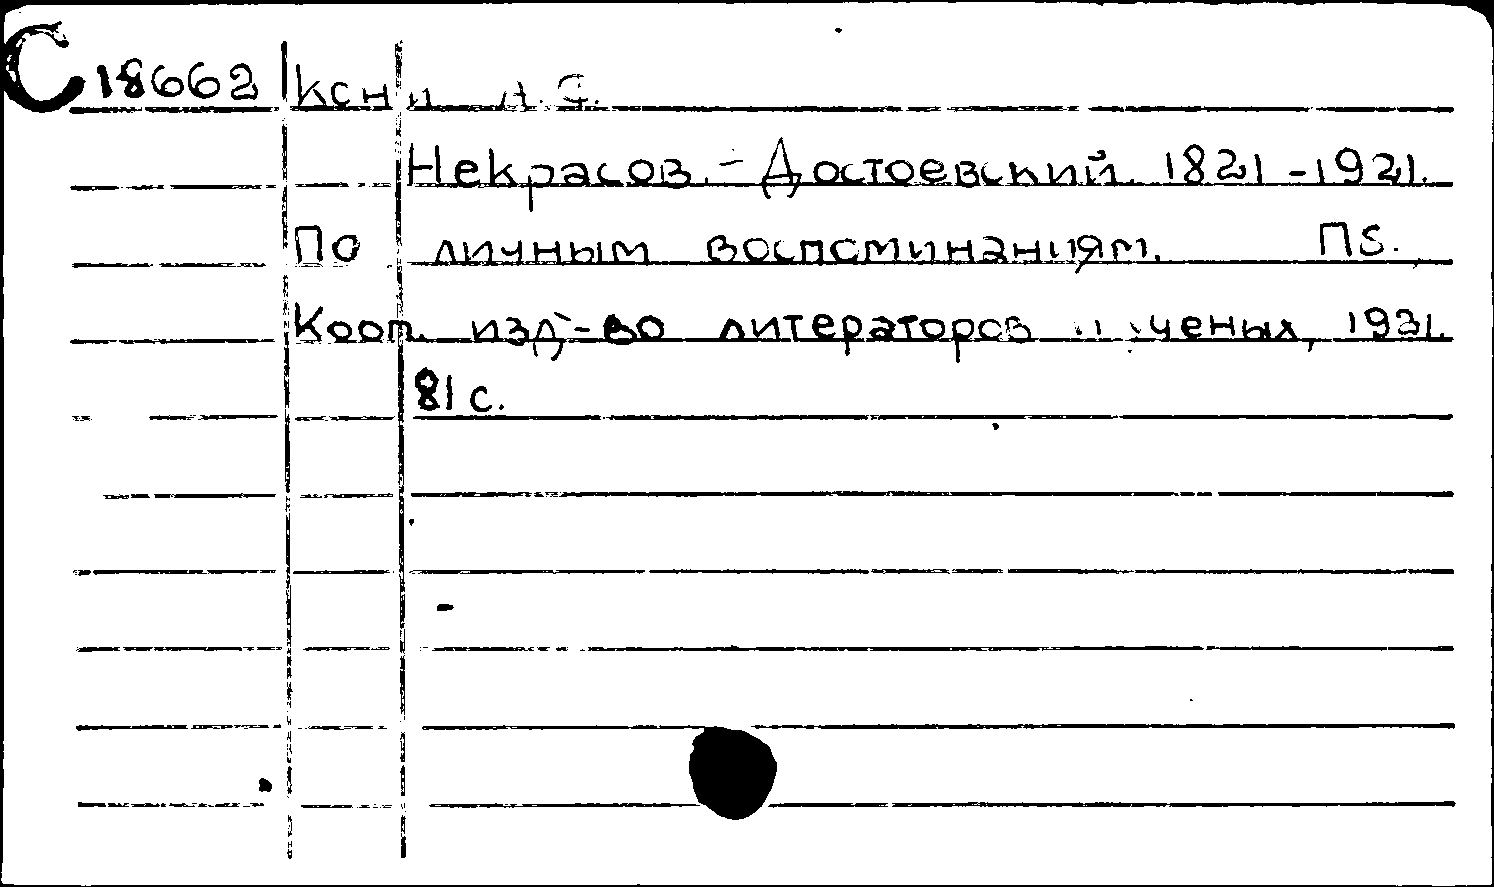 С 18662 Кони А. Ф.
Некрасов. - Достоевский. 1821-1921.
По личным воспоминаниям. Пб.,
Кооп. изд-во литераторов и ученых, 1921.
81 с.